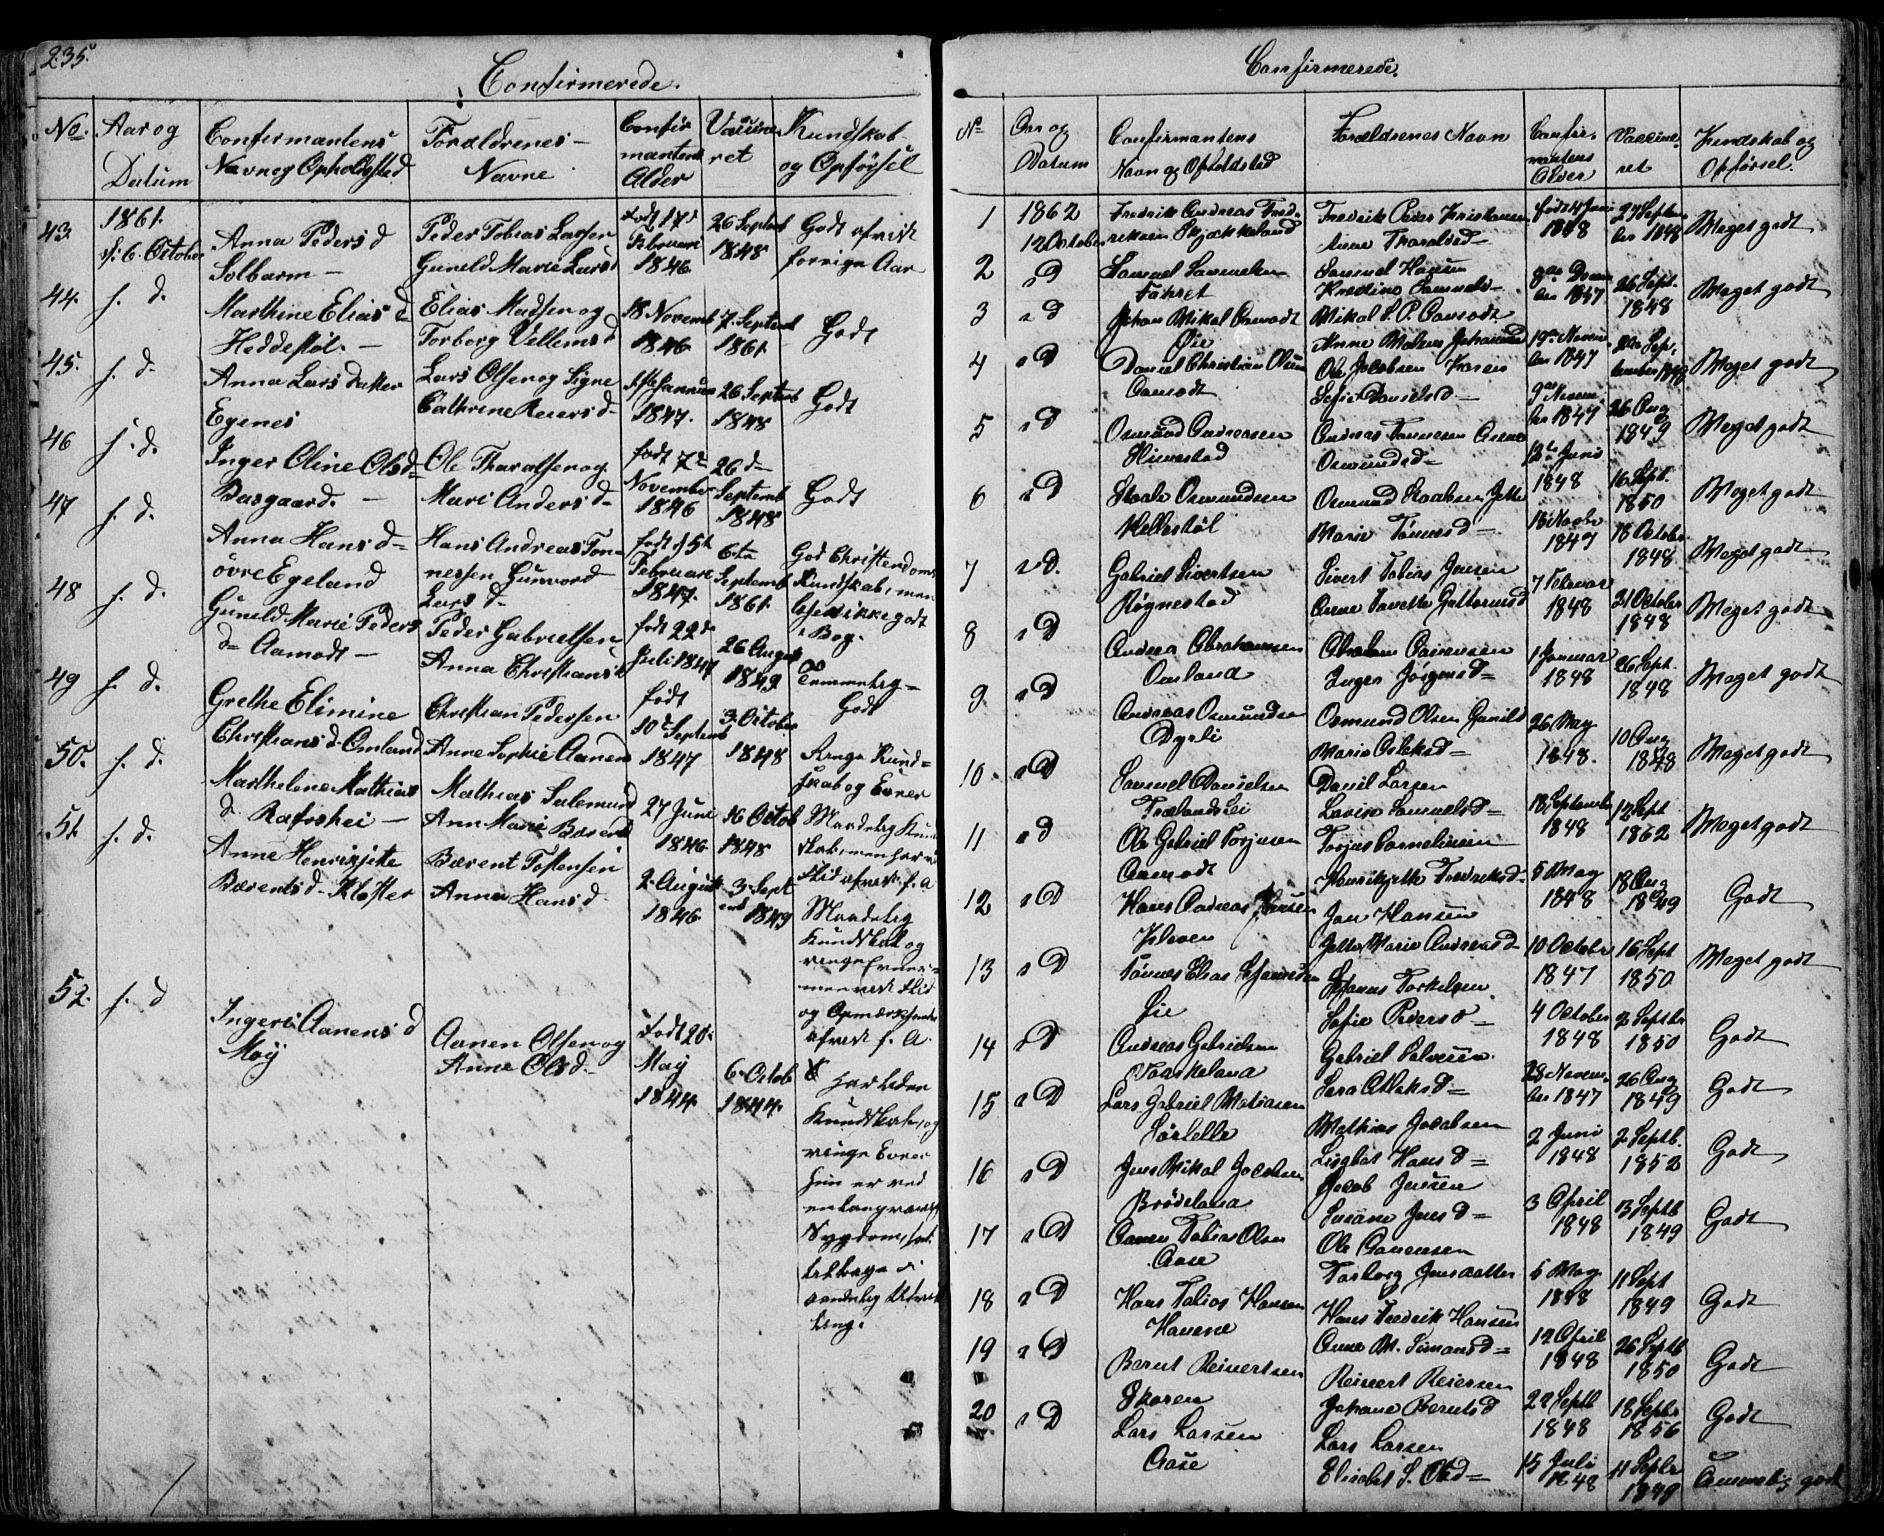 235.
Confirmerede.
No. Aar og Datum
Confirmantens Navn og Opholdsted
Forældrenes Navne
Confirmantens Alder
Vaccineret
Kundskab og Opførsel
43. 1861 d: 6. October
Anna Peders d
Solbarm
Peder Tobias Larsen
Gunild Marie Larsd
født 17d Februari 1846
26 Septemb 1848
Godt
forrige Aar
44. s. d.
Marthine Elias d
Heddestøl
Elias Madsen og
Torborg Villems d
18 Novemb 1846
7. Septemb 1861
Godt
45. s. d.
Anna Lars datter
Egenes
Lars Olsen og Signe
Cathrine Reiers d
1847.
26 Septemb 1848
Godt
46 s. d.
Inger Oline Olsd
Basgaard
Ole Tharalsen og
Mari Anders d
født 7d November 1846
26 d Septemb 1848
Godt
47 s. d.
Anna Hans d
øvre Egeland
Hans Andreas Tøn-
nessen Gunvord
Lars d
født d 5t Februari 1847.
6te Septemb 1861.
God Christendoms
Kundskab, men
læser ikke godt
i Bog.
48 s. d.
Gunild Marie Peders
d Aamodt
Peder Gabrielsen
Anna Christians d
født 22d Juli 1847
26 August 1849
Temmelig
Godt
49 s. d.
Grethe Elimine
Christians d. Omland
Christian Pedersen
Anne Sophie Aanens
født 10d Septemb 1847
3. October 1848
Ringe Kund-
skab og Evner
50. s. d.
Marthelene Mathias
d. Rafoshei
Mathias Salemons
Ann Marie Bærents
27 Juni 1846
16 Octob 1848
Maadelig Kund
skab, men
51 s. d.
Anne Henrikjette
Bærents d. Kloster
Bærent Tostensen
Anna Hans d
2. August 1846
3. Sept 1849
Maadelig
Kundskab og
ringe Evner
og Opmærksomhed
52. s. d
Ingeri Aanens d
Moy
Aanen Olsen og
Anne Ols d
født 20 May 1844
6 Octob 1844.
Kundskaber, og
ringe Evner
hun er ved
Sygdom,
Confirmerede.
No Aar og Datum
Confirmantens Navn og Opholdsted
Forældrenes Navn
Confirmantens Alder
Vaccineret
Kundskab og Opførsel.
1 1862 12 October
Fredrik Andreas Fred-
riksen Skjækkeland
Fredrik Peder Kristiansen
Anne Tharalsd
født 4 Juni 1848
27 September 1848
Meget godt
2 d
Samuel Samuelsen
Samuel Hansen
Kristine Samuelsd
9de December 1847
26 Sept. 1848
Meget godt
3 d
Johan Mikal Aamodt
Øie
Mikal S. P. Aamodt
Anne Johannesd
19de November 1847
September 1848
Meget godt
4 d
Daniel Christian Olsen
Aamodt
Ole Jacobsen Karen
Sofie Danielsd
9de November 1847
26 Aug 1849
Meget godt
5 d
Osmund Andreassen
Andreas Tønnesen Anne
Osmundsd
12te Juni 1848
16 Sept. 1850
Meget godt
6 d
Staale Osmundsen
Hellestøl
Osmund Staalesen Jette
Marie Tønnesd
18 Novbr 1847
18 October 1848
Meget godt
7 d.
Gabriel Sivertsen
Røgnestad
Sivert Tobias Jensen
Anne Guttormsd
7 Februar 1848
21 October 1848
Meget godt
8 d
Andreas Abrahamsen
Omland
Inger Jørgensd
1 Januar 1848
26 Sept. 1848
Meget godt
9 d
Andreas Osmundsen
Dyrli
Osmund Olsen Gunild
Marie Aslaksd
26 May 1848.
10 Aug 1848
Meget godt
10 d
Samuel Danielsen
Daniel Larsen
Lovise Samuelsd
18 September 1848
12 Sept 1862
Meget godt
11 d
Ole Gabriel Torjusen
Aamodt
Torjus Corneliusen
Henrikjette Fredriksd
5 May 1848
18 Aug 1849
Godt
12 d
Hans Andreas Jansen
Kloven
Jan Hansen
Jette Marie Andreasd
10 October 1847
16 Sept 1850
Meget godt
13 d
Tønnes Elias
Øie
Torkelsen
Sofie Peders d
4 October 1848
2 Septbr 1850
Godt
14 d
Andreas Gabrielsen
Gabriel Salvesen
Sara Aslaksd
28 November 1847
26 Aug 1849
Godt
15 d
Lars Gabriel Matiasen
Sørtelle
Mathias Jacobsen
Lisabet Hans d
2 Juni 1848
2 Septb. 1852
Godt
16 d
Jens Mikal Jacobsen
Brødeland
Jacob Jensen
Susane Jens d
3 April 1848
13 Septb 1849
Godt
17 d
Aanen Tobias Olsen
Aase
Ole Aanensen
Torborg Jensdatter
5 May 1848
11 Sept 1849
Godt
18 d
Hans Tobias Hansen
Havene
Hans Fredrik Hansen
Anne M. Simonsd
12 April 1848
26 Septb 1850
Godt
19 d
Bernt Reinertsen
Skoren
Reinert Reiersen
Johane Berntsd
22 Septb 1848
18 Septbr 1856
Godt
20 d
Lars Larsen
Aase
Lars Larsen
Elisabet S. Olsd
15 Juli 1848
11 Septbr 1849
Temmelig godt